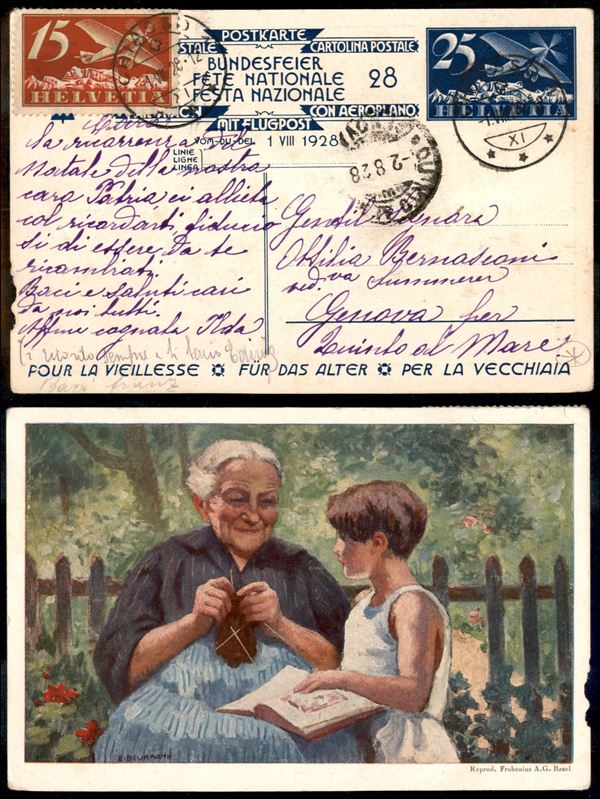 15
HELVETIA
POSTKARTE
CARTOLINA POSTALE
BUNDESFEIER
FÊTE NATIONALE
FESTA NAZIONALE
28
CON AEROPLANO
MIT FLUGPOST
VOM-DU-DEL 1 VIII 1928
LINIE
LIGNE
LINEA
25
HELVETIA
-2.8.28
XI
la ricorrenza
Natale della nostra
cara Patria ci allieta
col ricordarti, fiducio
si di essere da te
ricambiati.
Baci e saluti cari
da noi tutti.
Affma cognata Ilda
Gentil Signora
Ossilia Bernasconi
ved.va
Genova per
Quinto al Mare
POUR LA VIEILLESSE FÜR DAS ALTER PER LA VECCHIAIA
E·BEURMANN
Reprod. Frobenius A.G. Basel